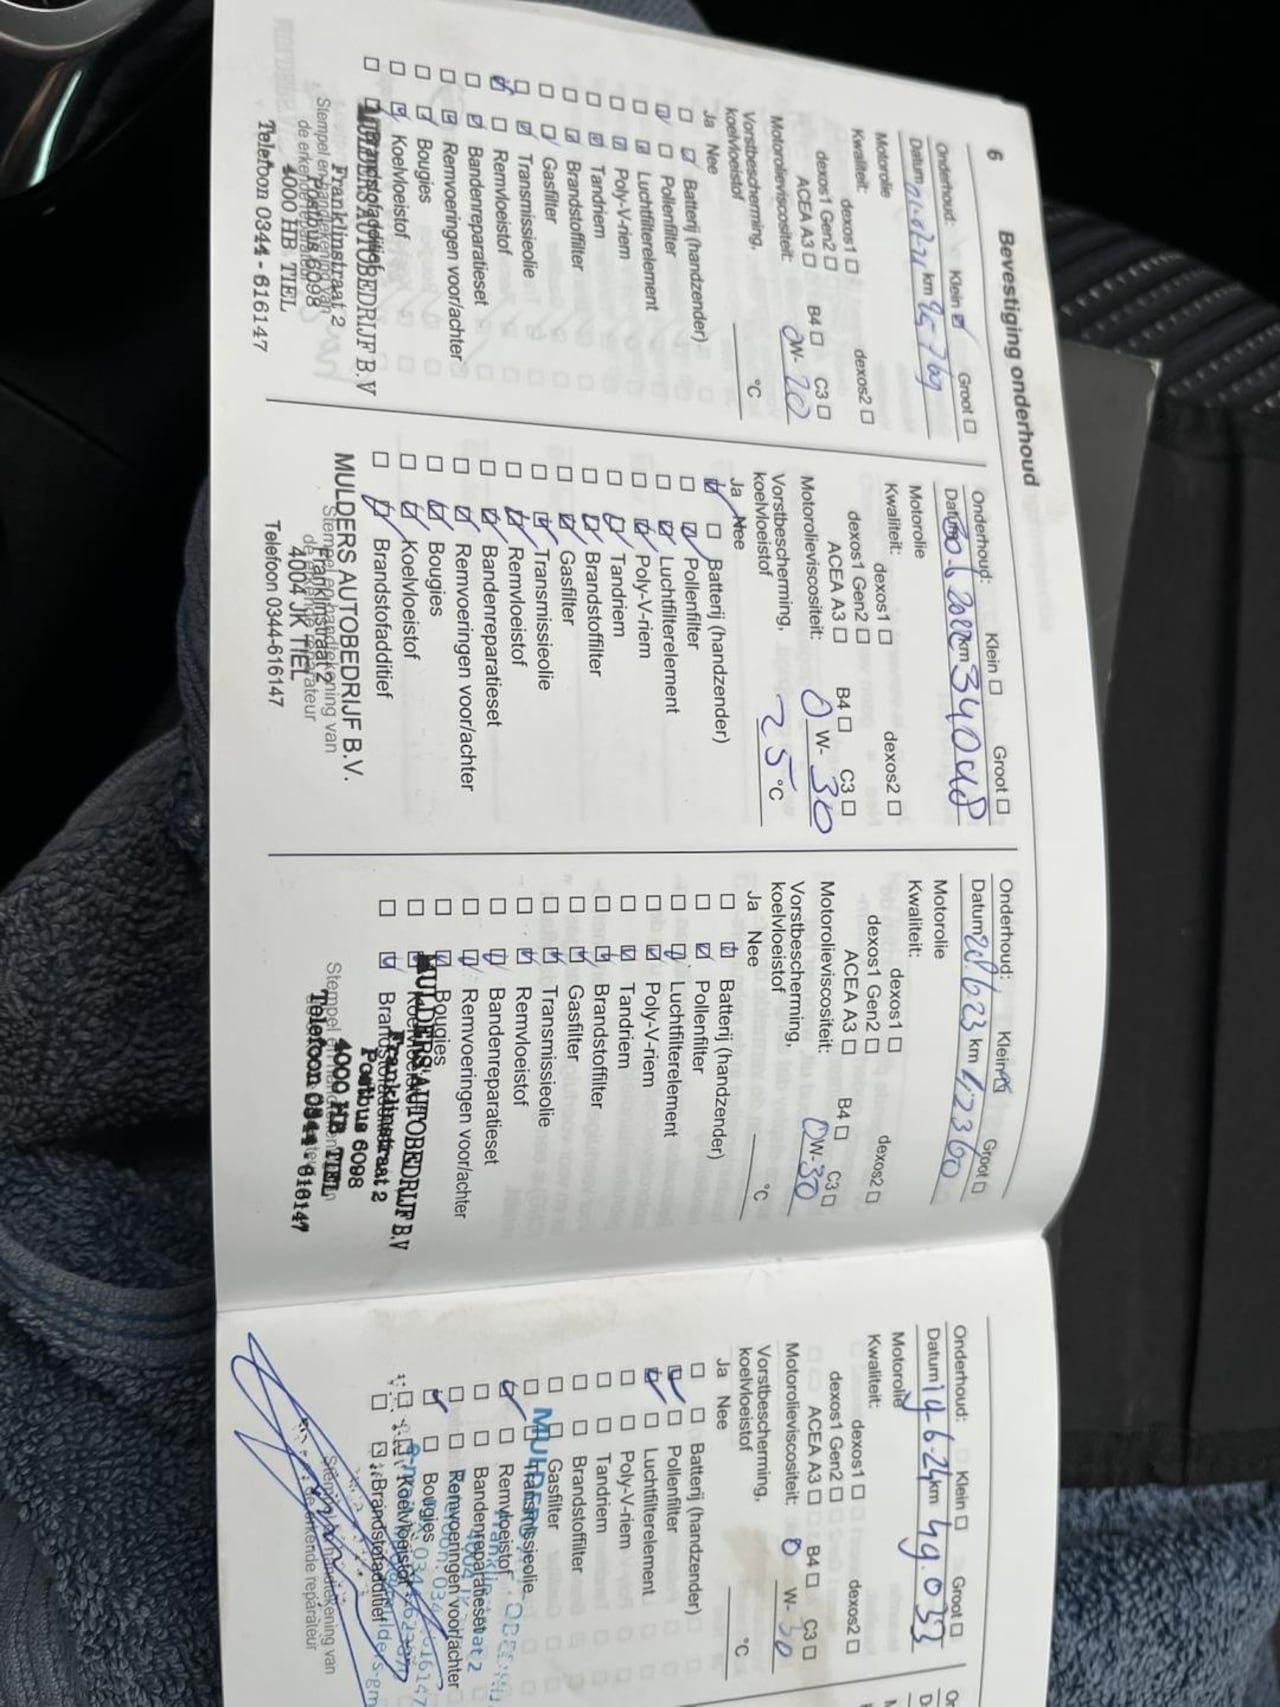 6 Bevestiging onderhoud
Onderhoud: Klein ☑ Groot ☐
Datum km 25.769
Motorolie
Kwaliteit: dexos1 ☐ dexos2 ☐
dexos1 Gen2 ☐
ACEA A3 ☐ B4 ☐ C3 ☐
Motorolieviscositeit: 0W-20
Vorstbescherming,
koelvloeistof °C
Ja Nee
☐ ☑ Batterij (handzender)
☑ ☐ Pollenfilter
☐ ☑ Luchtfilterelement
☐ ☑ Poly-V-riem
☐ ☑ Tandriem
☐ ☑ Brandstoffilter
☐ ☑ Gasfilter
☐ ☑ Transmissieolie
☑ ☐ Remvloeistof
☐ ☑ Bandenreparatieset
☐ ☑ Remvoeringen voor/achter
☐ ☑ Bougies
☐ ☑ Koelvloeistof
☐ ☑ Brandstofadditief
MULDERS AUTOBEDRIJF B.V
Franklinstraat 2
Stempel en handtekening van
Postbus 6098
de erkende reparateur
4000 HB TIEL
Telefoon 0344 - 616147
Onderhoud: Klein ☐ Groot ☐
Datum 2022 km 34048
Motorolie
Kwaliteit: dexos1 ☐ dexos2 ☐
dexos1 Gen2 ☐
ACEA A3 ☐ B4 ☐ C3 ☐
Motorolieviscositeit: 0W-30
Vorstbescherming,
koelvloeistof -25 °C
Ja Nee
☑ ☐ Batterij (handzender)
☐ ☑ Pollenfilter
☐ ☑ Luchtfilterelement
☐ ☑ Poly-V-riem
☐ ☑ Tandriem
☐ ☑ Brandstoffilter
☐ ☑ Gasfilter
☐ ☑ Transmissieolie
☐ ☑ Remvloeistof
☐ ☑ Bandenreparatieset
☐ ☑ Remvoeringen voor/achter
☐ ☑ Bougies
☐ ☑ Koelvloeistof
☐ ☑ Brandstofadditief
MULDERS AUTOBEDRIJF B.V.
Stempel en handtekening van
Franklinstraat 2
de erkende reparateur
4004 JK TIEL
Telefoon 0344-616147
Onderhoud: Klein ☑ Groot ☐
Datum 28.6.23 km 42360
Motorolie
Kwaliteit: dexos1 ☐ dexos2 ☐
dexos1 Gen2 ☐
ACEA A3 ☐ B4 ☐ C3 ☐
Motorolieviscositeit: 0W-30
Vorstbescherming,
koelvloeistof °C
Ja Nee
☐ ☑ Batterij (handzender)
☐ ☑ Pollenfilter
☐ ☑ Luchtfilterelement
☐ ☑ Poly-V-riem
☐ ☑ Tandriem
☐ ☑ Brandstoffilter
☐ ☑ Gasfilter
☐ ☑ Transmissieolie
☐ ☑ Remvloeistof
☐ ☑ Bandenreparatieset
☐ ☑ Remvoeringen voor/achter
☐ ☑ Bougies
☐ ☑ Koelvloeistof
☐ ☑ Brandstofadditief
MULDERS AUTOBEDRIJF B.V
Franklinstraat 2
Postbus 6098
4000 HB TIEL
Stempel en handtekening van
Telefoon 0344 - 616147
Onderhoud: Klein ☐ Groot ☐
Datum 14-6-24 km 49.033
Motorolie
Kwaliteit: dexos1 ☐ dexos2 ☐
dexos1 Gen2 ☐
ACEA A3 ☐ B4 ☐ C3 ☐
Motorolieviscositeit: 0 W-30
Vorstbescherming,
koelvloeistof °C
Ja Nee
☐ ☐ Batterij (handzender)
☑ ☐ Pollenfilter
☑ ☐ Luchtfilterelement
☐ ☐ Poly-V-riem
☐ ☐ Tandriem
☐ ☐ Brandstoffilter
☐ ☐ Gasfilter
☐ ☐ Transmissieolie
☑ ☐ Remvloeistof
☐ ☐ Bandenreparatieset
☐ ☐ Remvoeringen voor/achter
☑ ☐ Bougies
☐ ☐ Koelvloeistof
☐ ☒ Brandstofadditief
Stempel en handtekening van
de erkende reparateur